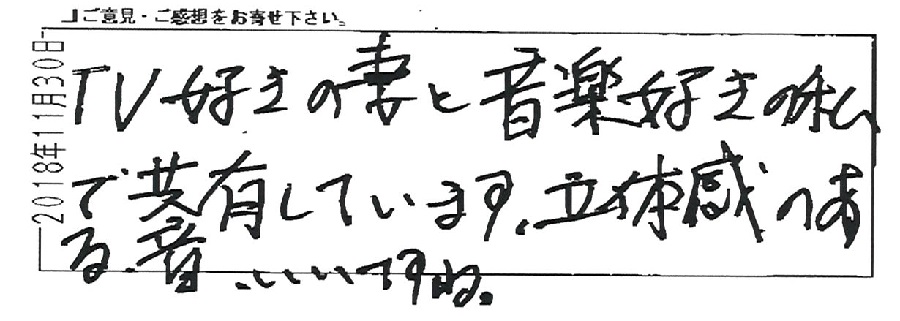 』ご意見・ご感想をお寄せ下さい。
2018年11月30日
TV好きの妻と音楽好きの私
で共有しています。立体感のあ
る音、いいですね。